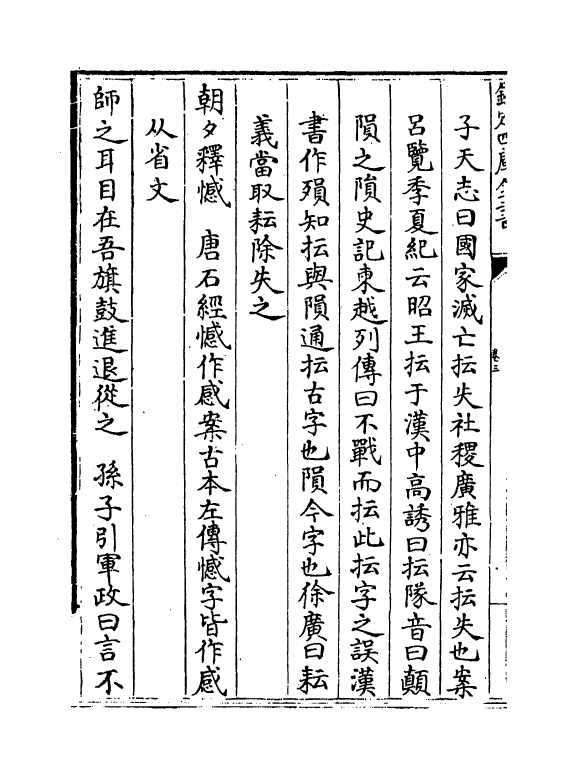 欽定四庫全書
卷三
子天志曰國家滅亡抎失社稷廣雅亦云抎失也案
呂覽季夏紀云昭王抎于漢中高誘曰抎隊音曰顛
隕之隕史記東越列傳曰不戰而抎此抎字之誤漢
書作殞知抎與隕通抎古字也隕今字也徐廣曰耘
義當取耘除失之
朝夕釋憾　唐石經憾作感案古本左傳憾字皆作感
从省文
師之耳目在吾旗鼓進退從之　孫子引軍政曰言不